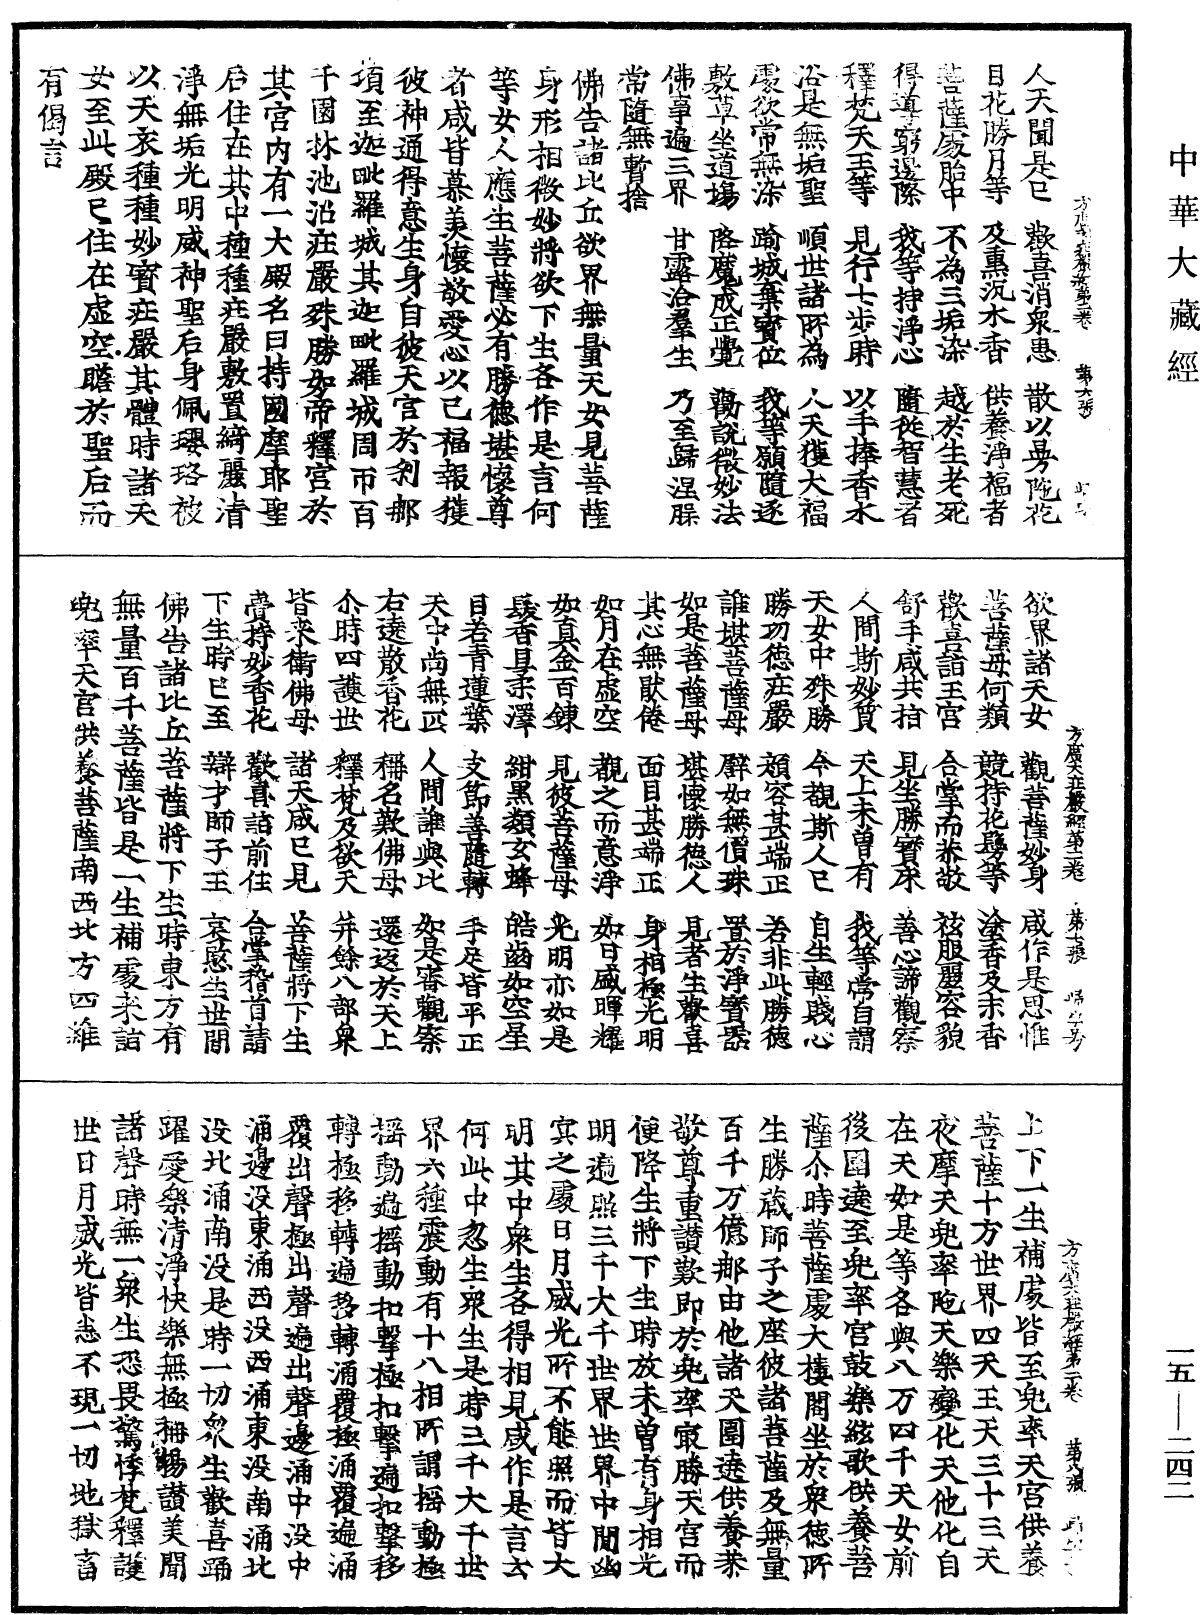 中華大藏經
一五—二四二
人天聞是已　歡喜消衆患　散以曼陁花
目花勝月等　及熏沉水香　供養淨福者
菩薩處胎中　不為三垢染　越於生老死
得道窮邊際　我等持淨心　隨從智慧者
釋梵天王等　見行七步時　以手捧香水
浴是無垢聖　順世諸所為　人天獲大福
處欲常無染　踰城棄寶位　我等願隨逐
敷草坐道場　降魔成正覺　勸說微妙法
佛事遍三界　甘露洽羣生　乃至歸涅槃
常隨無暫捨
佛告諸比丘欲界無量天女見菩薩
身形相微妙將欲下生各作是言何
等女人應生菩薩必有勝德堪懷尊
者咸皆慕美懷敬愛心以己福報獲
彼神通得意生身自彼天宮於刹那
項至迦毗羅城其迦毗羅城周帀百
千園林池沼莊嚴殊勝如帝釋宮於
其宮内有一大殿名曰持國摩耶聖
后住在其中種種莊嚴敷置綺麗清
淨無垢光明威神聖后身佩瓔珞被
以天衣種種妙寶莊嚴其體時諸天
女至此殿已住在虛空瞻於聖后而
有偈言
方廣大莊嚴經第二卷　第七張
欲界諸天女　觀菩薩妙身　咸作是思惟
菩薩母何類　競持花鬘等　塗香及末香
歡喜詣王宮　合掌而恭敬　袨服麗容貌
舒手咸共指　見坐勝寶床　善心諦觀察
人間斯妙質　天上未曾有　我等常自謂
天女中殊勝　今覩斯人已　自生輕賤心
勝功德莊嚴　頞容甚端正　若非此勝德
誰堪菩薩母　譬如無價珠　置於淨寶器
如是菩薩母　堪懷勝德人　見者生歡喜
其心無猒倦　面目甚端正　身相極光明
如月在虛空　覩之而意淨　如日盛暉耀
如真金百鍊　見彼菩薩母　光明亦如是
髮香且柔澤　紺黑類玄蜂　皓齒如空星
目若青蓮葉　支節善隨轉　手足皆平正
天中尚無匹　人間誰與比　如是審觀察
右遶散香花　稱名歎佛母　還返於天上
尒時四護世　釋梵及欲天　并餘八部衆
皆來衛佛母　諸天咸已見　菩薩將下生
賷持妙香花　歡喜詣前住　合掌稽首請
下生時已至　辯才師子王　哀愍生世間
佛告諸比丘菩薩將下生時東方有
無量百千菩薩皆是一生補處來詣
兜率天宮供養菩薩南西北方四維
方廣大莊嚴經第二卷　第八張
上下一生補處皆至兜率天宮供養
菩薩十方世界四天王天三十三天
夜摩天兜率陁天樂變化天他化自
在天如是等各與八万四千天女前
後圍遶至兜率宮鼓樂絃歌供養菩
薩尒時菩薩處大樓閣坐於衆德所
生勝藏師子之座彼諸菩薩及無量
百千万億那由他諸天圍遶供養恭
敬尊重讚歎即於兜率㝡勝天宮而
便降生將下生時放未曾有身相光
明遍照三千大千世界世界中間幽
冥之處日月威光所不能照而皆大
明其中衆生各得相見咸作是言云
何此中忽生衆生是時三千大千世
界六種震動有十八相所謂摇動極
摇動遍摇動扣擊極扣擊遍扣擊移
轉極移轉遍移轉涌覆極涌覆遍涌
覆出聲極出聲遍出聲邊涌中没中
涌邊没東涌西没西涌東没南涌北
没北涌南没是時一切衆生歡喜踊
躍愛樂清淨快樂無極稱揚讚美聞
諸聲時無一衆生恐畏驚悸梵釋護
世日月威光皆悉不現一切地獄畜